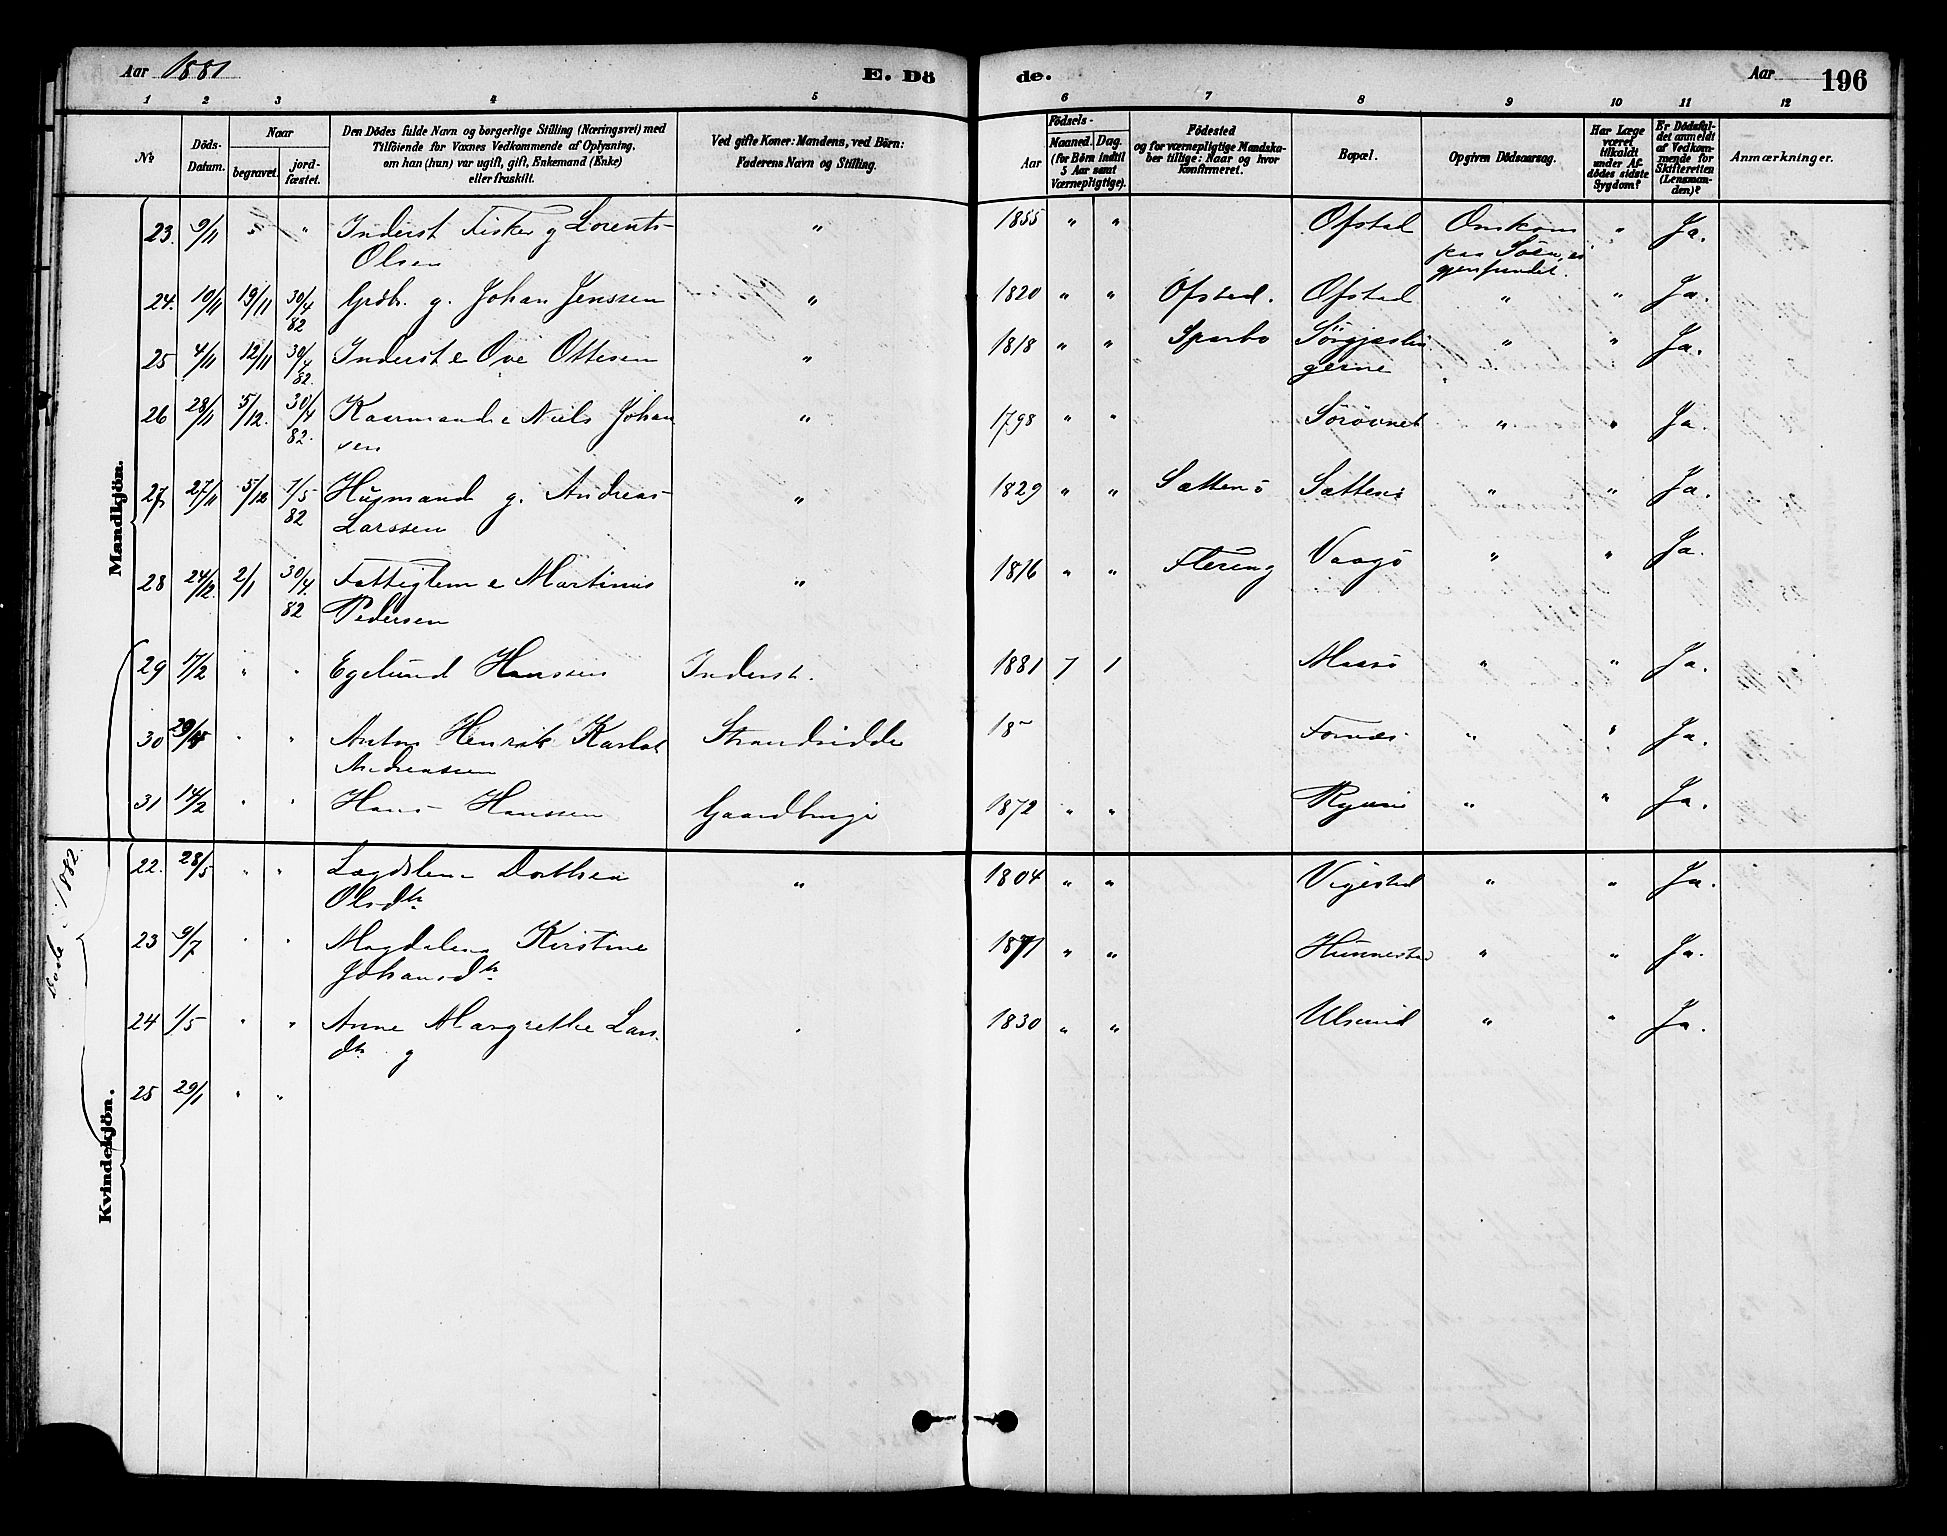 Aar 1881
E. Dö
de.
Aar
196
1 2 3 4 5 6 7 8 9 10 11 12
No
Döds-
Datum.
Naar
begravet.
jord-
fæstet.
Den Dödes fulde Navn og borgerlige Stilling (Næringsvei) med
Tilföiende for Voxnes Vedkommende af Oplysning,
om han (hun) var ugift, gift, Enkemand (Enke)
eller fraskilt.
Ved gifte Koner: Mandens, ved Börn:
Faderens Navn og Stilling.
Födsels-
Aar
Maaned. Dag.
(for Börn indtil
5 Aar samt
Værnepligtige).
Födested
og for værnepligtige Mandska-
ber tillige: Naar og hvor
konfirmeret.
Bopæl.
Opgiven Dödsaarsag.
Har Læge
været
tilkaldt
under Af-
dödes sidste
Sygdom?
Er Dödsfal-
det anmeldt
af Vedkom-
mende for
Skifteretten
(Lensman-
den)?
Anmærkninger.
Mandkjön.
23. 9/11 " Inderst Fisker g Lorents " 1855 " " Ofstad Omkom " Ja.
Olsen paa Söen, ei
gjenfundet.
24. 10/11 19/11 30/4 82 Grdb. g. Johan Jenssen " 1820 " " Ofstad. Ofstad " " Ja.
25 4/11 12/11 30/4 82. Inderst e Ove Ottesen " 1818 " " Sparbo " " Ja.
26 28/11 5/12. 30/4 82. Kaarmand e Niels Johan " 1798 " " Sörövnet " " Ja.
sen
27 27/11 5/12 1/5 82 Husmand g. Andreas " 1829 " " Sættenö Sættenö " " Ja.
Larssen
28 24/12. 2/1 30/4. 82 Fattiglem e Martinus " 1816 " " Flereng Vaagö " " Ja.
Pedersen
29 17/2 " " Egelund Hanssen Inderst. 1881 7 1 Maasö " " Ja.
30 " " Anton Henrik Karlot Strandsidde 18 Fornæs " " Ja.
Andreassen
31 14/2 " " Hans Hanssen Gaardbruge 1872 " " " " Ja.
Döde i 1882.
Kvindekjön.
22. 28/5 " " Lægdslem Dorthea " 1804 " " Vigestad " " Ja.
Olsdtr
23 9/7 " " Magdalena Kirstine 1871 " " Hunnestad " " Ja.
Johansdtr
24 1/5 " " Anne Margrethe Lars 1830 " " Ulsund " " Ja.
dtr g
25 29/1 " "